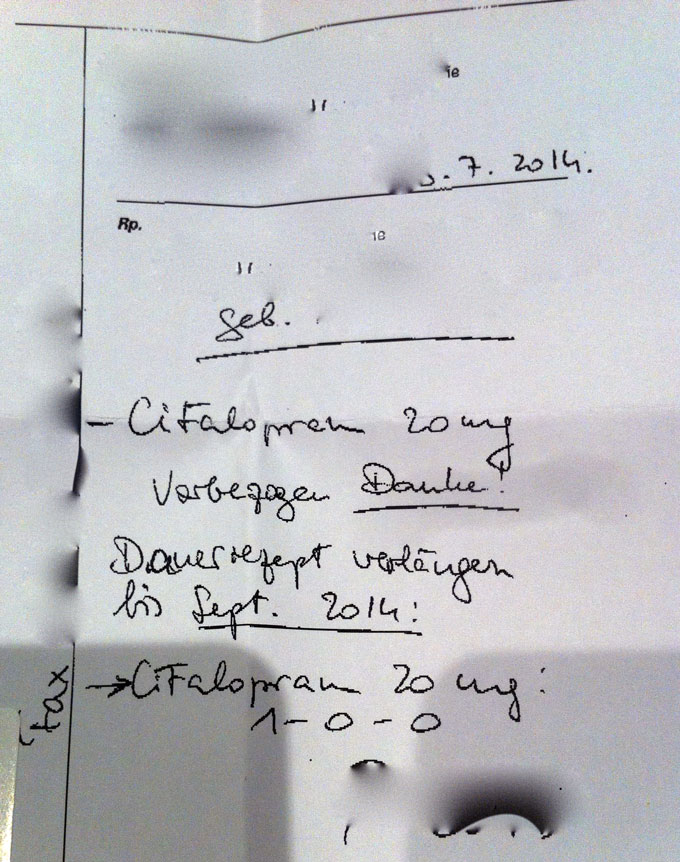 7. 2014.
Rp.
geb.
- Citalopram 20 mg
Vorbezogen Danke!
Dauerrezept verlängern
bis Sept. 2014:
→ Citalopram 20 mg:
1-0-0
fax